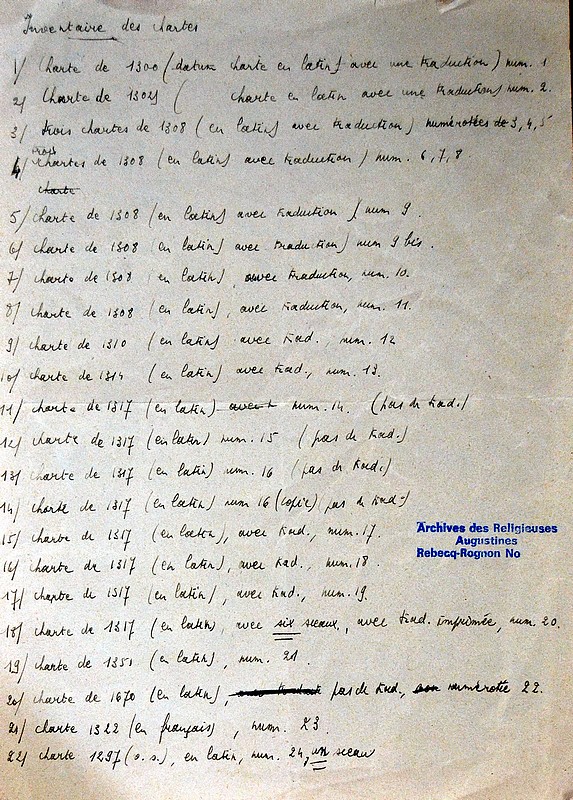 Inventaire des chartes
1/ charte de 1300 (datum charte en latin) avec une traduction) num. 1
2/ Charte de 1302 ( charte en latin avec une traduction) num. 2.
3/ trois chartes de 1308 (en latin) avec traduction) numérotées de 3, 4, 5
trois
4/ chartes de 1308 (en latin) avec traduction) num. 6, 7, 8.
charte
5/ charte de 1308 (en latin) avec traduction) num 9.
6/ charte de 1308 (en latin) avec traduction) num 9 bis.
7/ charte de 1308 (en latin), avec traduction, num. 10.
8/ charte de 1308 (en latin), avec traduction, num. 11.
9/ charte de 1310 (en latin) avec trad., num. 12
10/ charte de 1314 (en latin) avec trad., num. 13.
11/ charte de 1317 (en latin) avec t num. 14. (pas de trad.)
12/ charte de 1317 (en latin) num. 15 (pas de trad.)
13/ charte de 1317 (en latin) num. 16 (pas de trad.)
14/ charte de 1317 (en latin) num 16 (copie) pas de trad.)
15/ charte de 1317 (en latin), avec trad., num. 17.
16/ charte de 1317 (en latin), avec trad., num. 18.
17/ charte de 1317 (en latin), avec trad., num. 19.
18/ charte de 1317 (en latin), avec six sceaux, avec trad. imprimée, num. 20.
19/ charte de 1351 (en latin), num. 21.
20/ charte de 1670 (en latin), pas de trad., numérotée 22.
21/ charte 1322 (en français), num. 23.
22/ charte 1297 (o. s.), en latin, num. 24, un sceau
Archives des Religieuses
Augustines
Rebecq-Rognon No